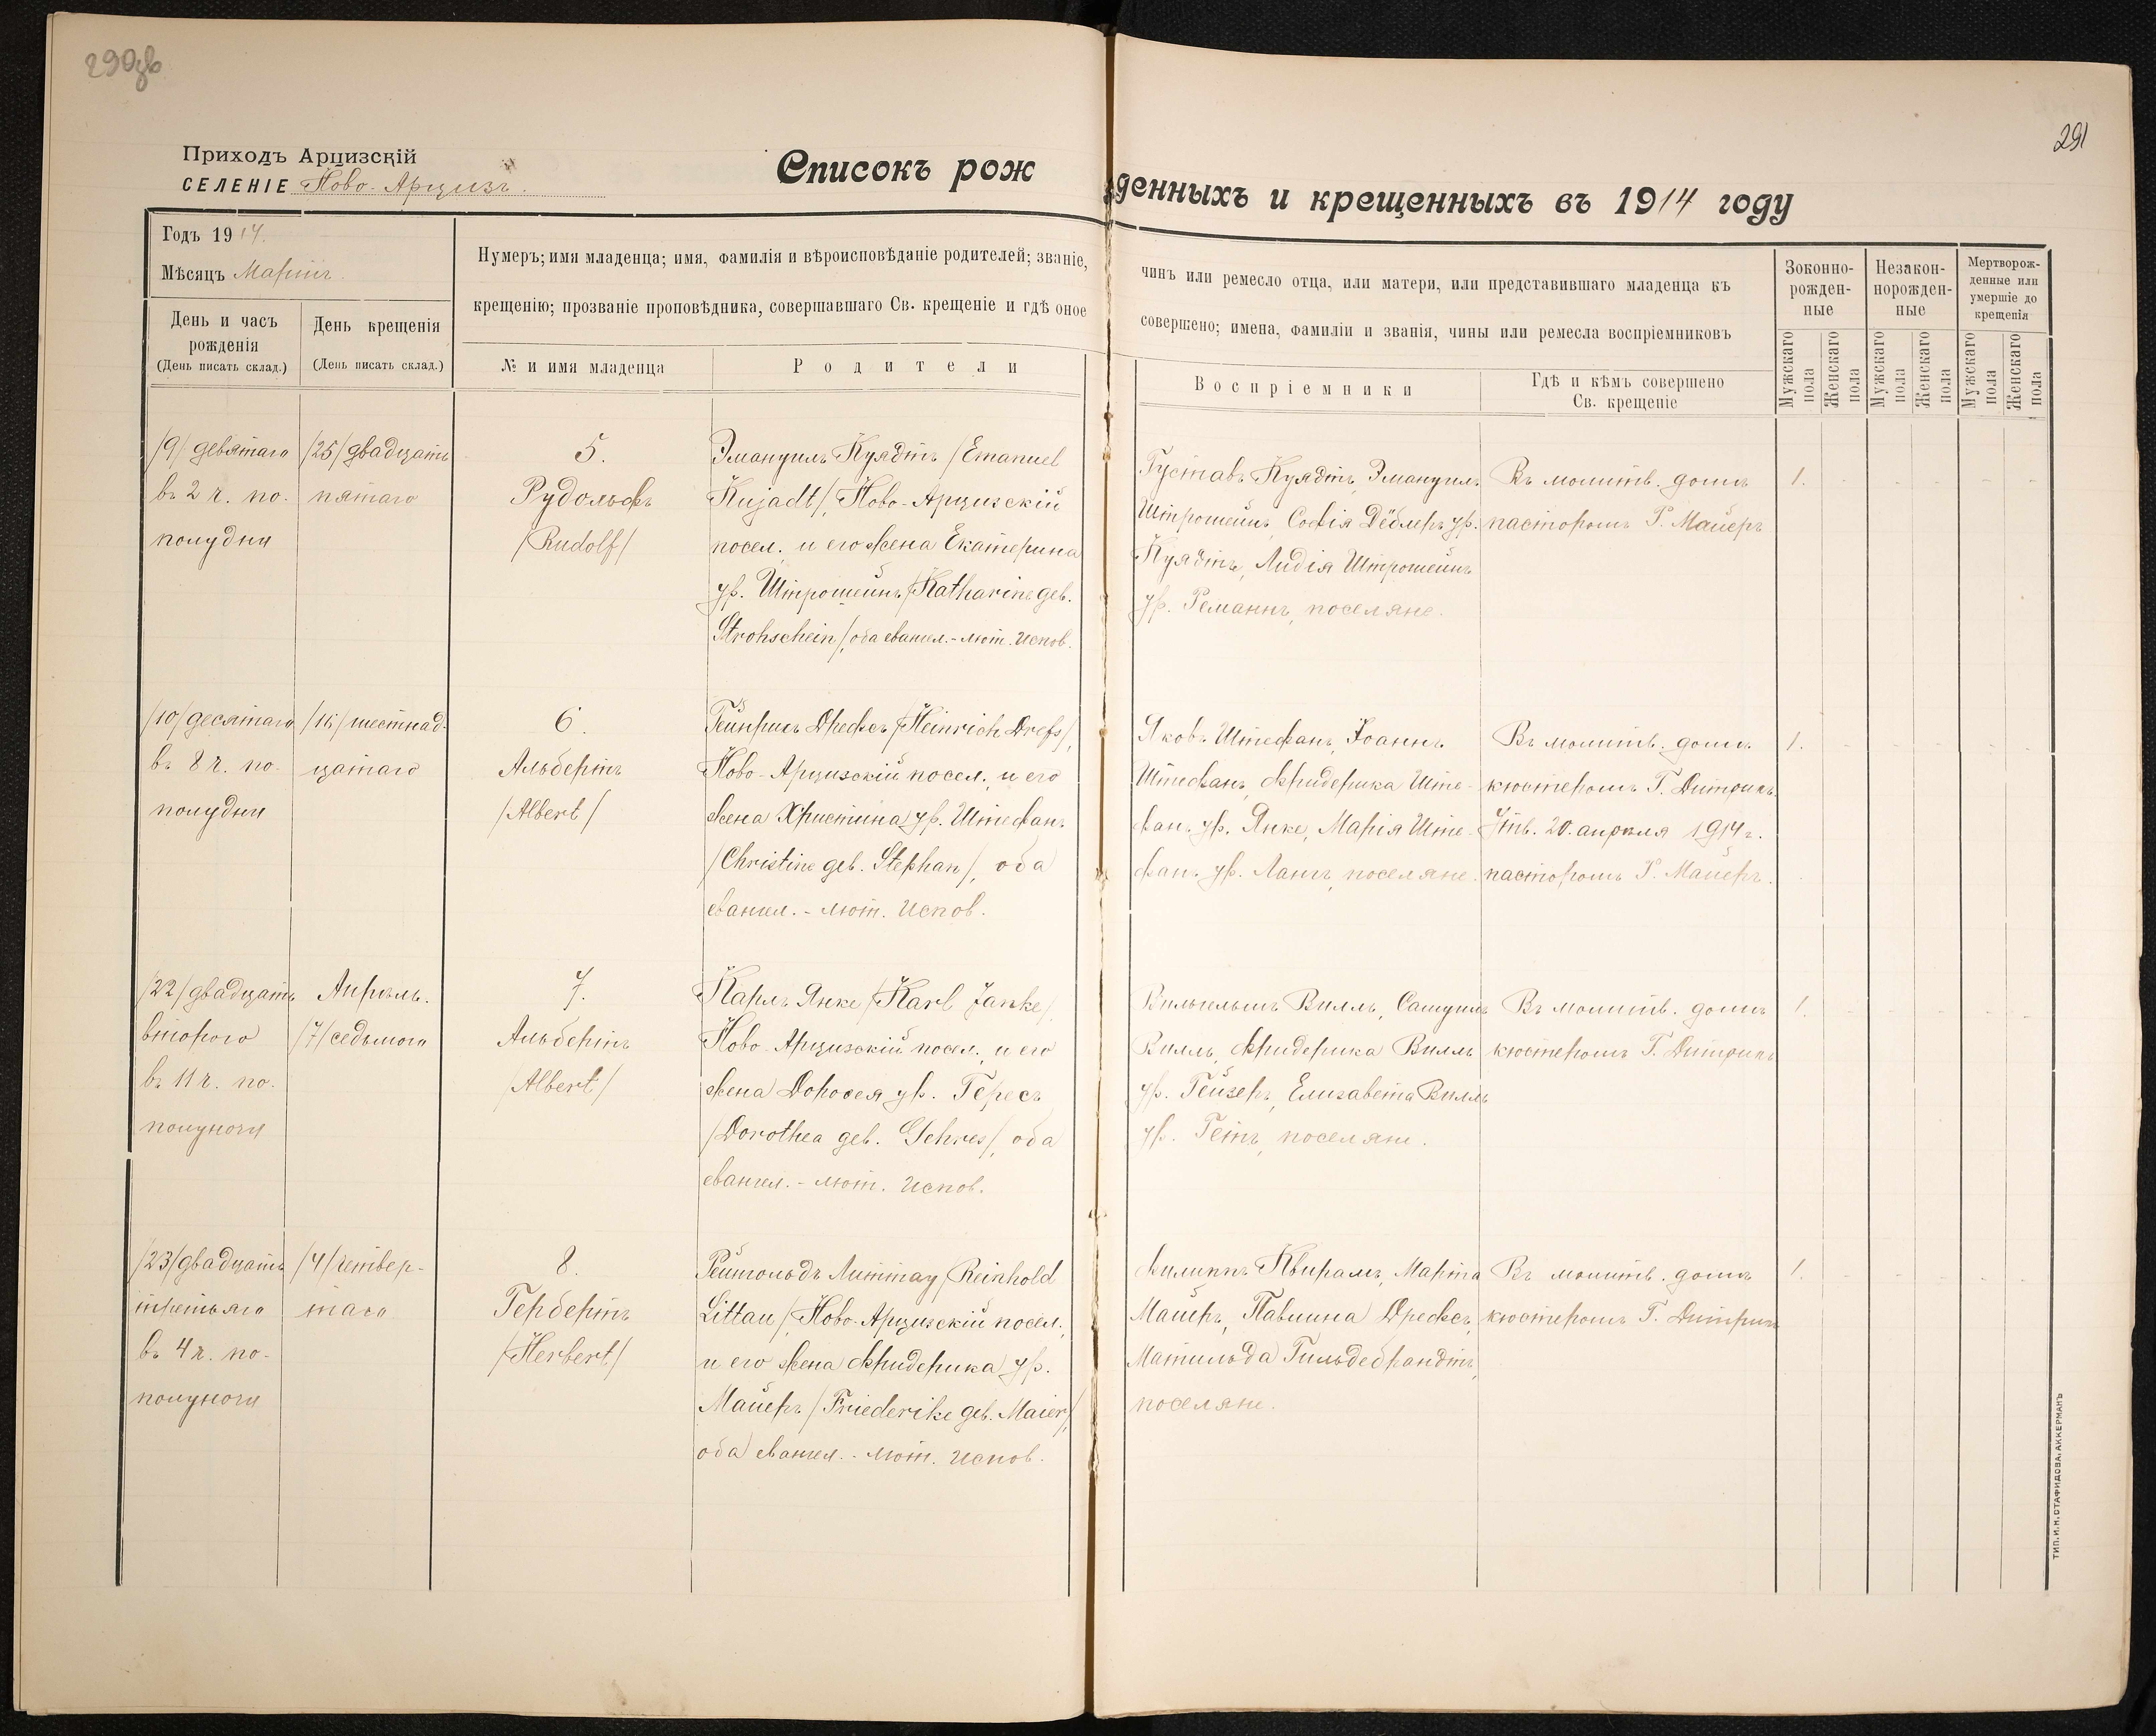 290зв
291
Приходъ Арцизскій
СЕЛЕНІЕ Ново-Арцизъ.
Списокъ рожденныхъ и крещенныхъ въ 1914 году
Годъ 1914.
Мѣсяцъ Мартъ.
День и часъ
рожденія
(День писать склад.)
День крещенія
(День писать склад.)
Нумеръ; имя младенца; имя, фамилія и вѣроисповѣданіе родителей; званіе,
крещенію; прозваніе проповѣдника, совершавшаго Св. крещеніе и гдѣ оное
№ и имя младенца
Родители
чинъ или ремесло отца, или матери, или представившаго младенца къ
совершено; имена, фамиліи и званія, чины или ремесла воспріемниковъ
Воспріемники
Гдѣ и кѣмъ совершено
Св. крещеніе
Зоконно-
рожден-
ные
Незакон-
норожден-
ные
Мертворож-
денные или
умершіе до
крещенія
Мужскаго
пола
Женскаго
пола
Мужскаго
пола
Женскаго
пола
Мужскаго
пола
Женскаго
пола
/9/ девятаго
въ 2 ч. по-
полудни
/25/ двадцать
пятаго
5.
Рудольфъ
/Rudolf/
Эмануилъ Куядтъ /Emanuel
Kujadt/, Ново-Арцизскій
посел. и его жена Екатерина
ур. Штрошейнъ /Katharine geb.
Strohschein/, оба евангел.-лют. испов.
Густавъ Куядтъ, Эмануилъ
Штрошейнъ, Софія Дёблеръ ур.
Куядтъ, Лидія Штрошейнъ
ур. Реманнъ, поселяне.
Въ молитв. домѣ
пасторомъ Г. Майеръ
1. - - - - -
/10/ десятаго
въ 8 ч. по-
полудни
/16/ шестнад-
цатаго
6.
Альбертъ
/Albert/
Гейнрихъ Дрефсъ /Heinrich Drefs/,
Ново-Арцизскій посел., и его
жена Христина ур. Штефанъ
/Christine geb. Stephan/, оба
евангел.-лют. испов.
Яковъ Штефанъ, Іоаннъ
Штефанъ, Фридерика Ште-
фанъ ур. Янке, Марія Ште-
фанъ ур. Лангъ, поселяне.
Въ молитв. домѣ
кюстеромъ Г. Дитрихъ.
Утв. 20. апрѣля 1914 г.
пасторомъ Г. Майеръ.
1. - - - - -
/22/ двадцать
второго
въ 11 ч. по-
полуночи
Апрѣль.
/7/ седьмого
7.
Альбертъ
/Albert/
Карлъ Янке /Karl Janke/,
Ново-Арцизскій посел., и его
жена Доротея ур. Гересъ
/Dorothea geb. Gehres/, оба
евангел.-лют. испов.
Вильгельмъ Виллъ, Самуилъ
Виллъ, Фридерика Виллъ
ур. Гейзеръ, Елизавета Виллъ
ур. Гетъ, поселяне.
Въ молитв. домѣ
кюстеромъ Г. Дитрихъ
1. - - - - -
/23/ двадцать
третьяго
въ 4 ч. по-
полуночи
/4/ четвер-
таго
8.
Гербертъ
/Herbert/
Рейнгольдъ Литтау /Reinhold
Littau/, Ново-Арцизскій посел.,
и его жена Фридерика ур.
Майеръ /Friederike geb. Maier/,
оба евангел.-лют. испов.
Филиппъ Квирамъ, Марта
Майеръ, Павлина Дрефсъ,
Матильда Гильдебрандтъ,
поселяне.
Въ молитв. домѣ
кюстеромъ Г. Дитрихъ
1. - - - - -
ТИП. И. Н. СТАФИДОВА. АККЕРМАНЪ